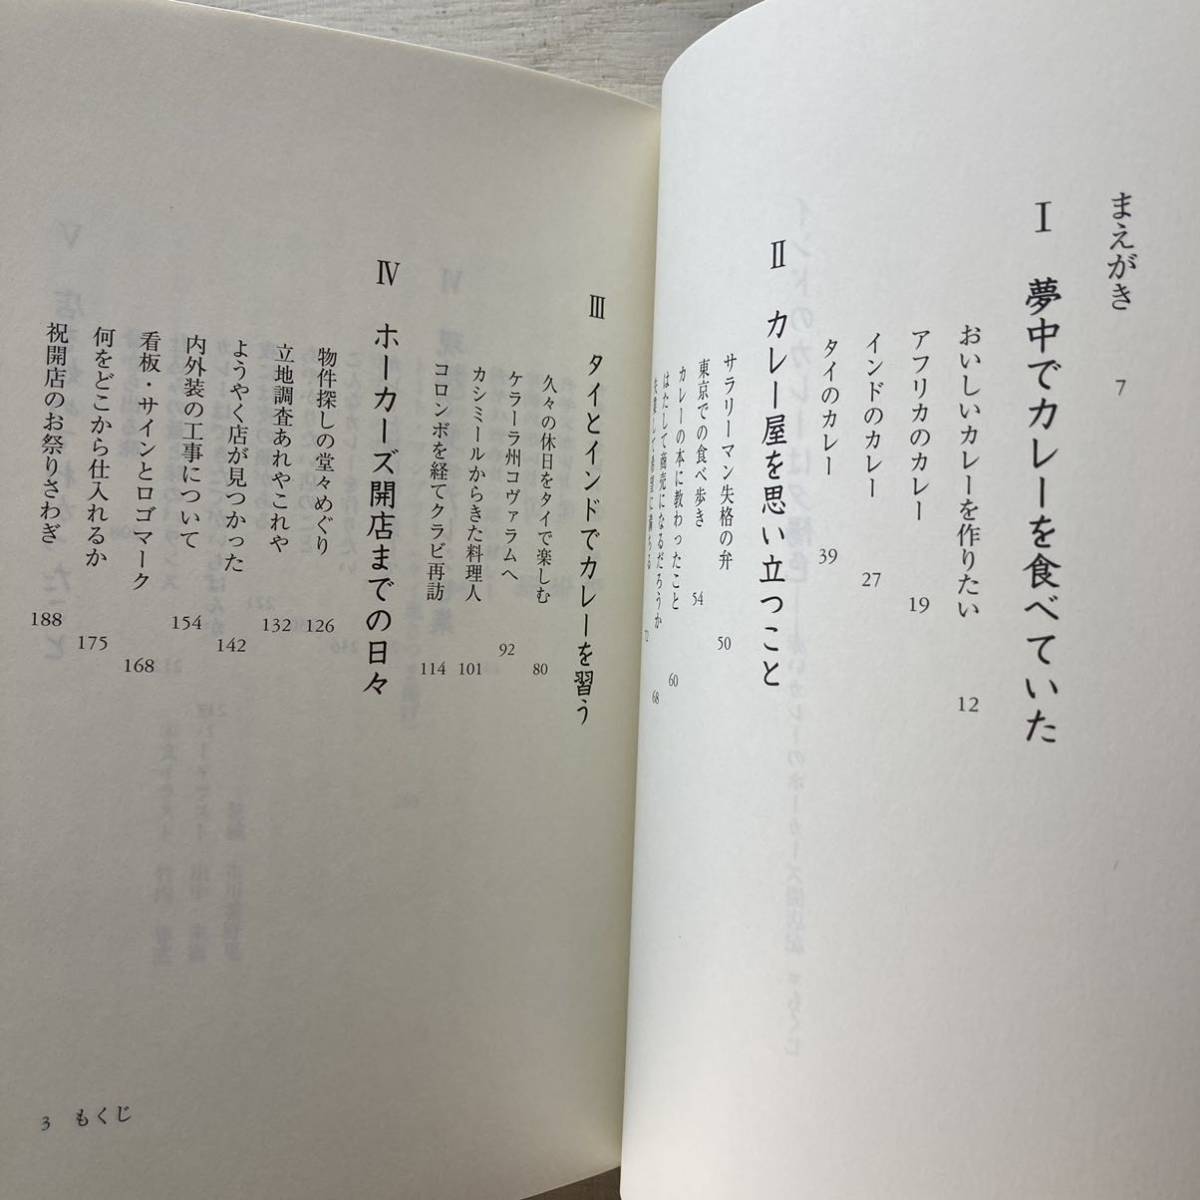 まえがき 7
Ⅰ 夢中でカレーを食べていた
おいしいカレーを作りたい 12
アフリカのカレー 19
インドのカレー 27
タイのカレー 39
Ⅱ カレー屋を思い立つこと
サラリーマン失格の弁 50
東京での食べ歩き 54
カレーの本に教わったこと 60
はたして商売になるだろうか 68
失業して希望に満ちる 72
Ⅲ タイとインドでカレーを習う
久々の休日をタイで楽しむ 80
ケララ州コヴァラムへ 92
カシミールからきた料理人 101
コロンボを経てクラビ再訪 114
Ⅳ ホーカーズ開店までの日々
物件探しの堂々めぐり 126
立地調査あれやこれや 132
ようやく店が見つかった 142
内外装の工事について 154
看板・サインとロゴマーク 168
何をどこから仕入れるか 175
祝開店のお祭りさわぎ 188
3 もくじ